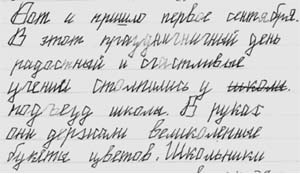 Вот и пришло первое сентября.
В этот праздничничный день
радостный и счастливые
ученики столпились у школы.
подъезд школы. В руках
они держали великоленные
букеты цветов. Школьники